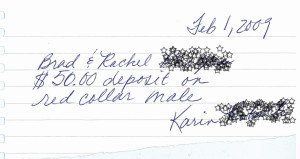 Feb 1, 2009
Brad & Rachel
$50.00 deposit on
red collar male
Karin